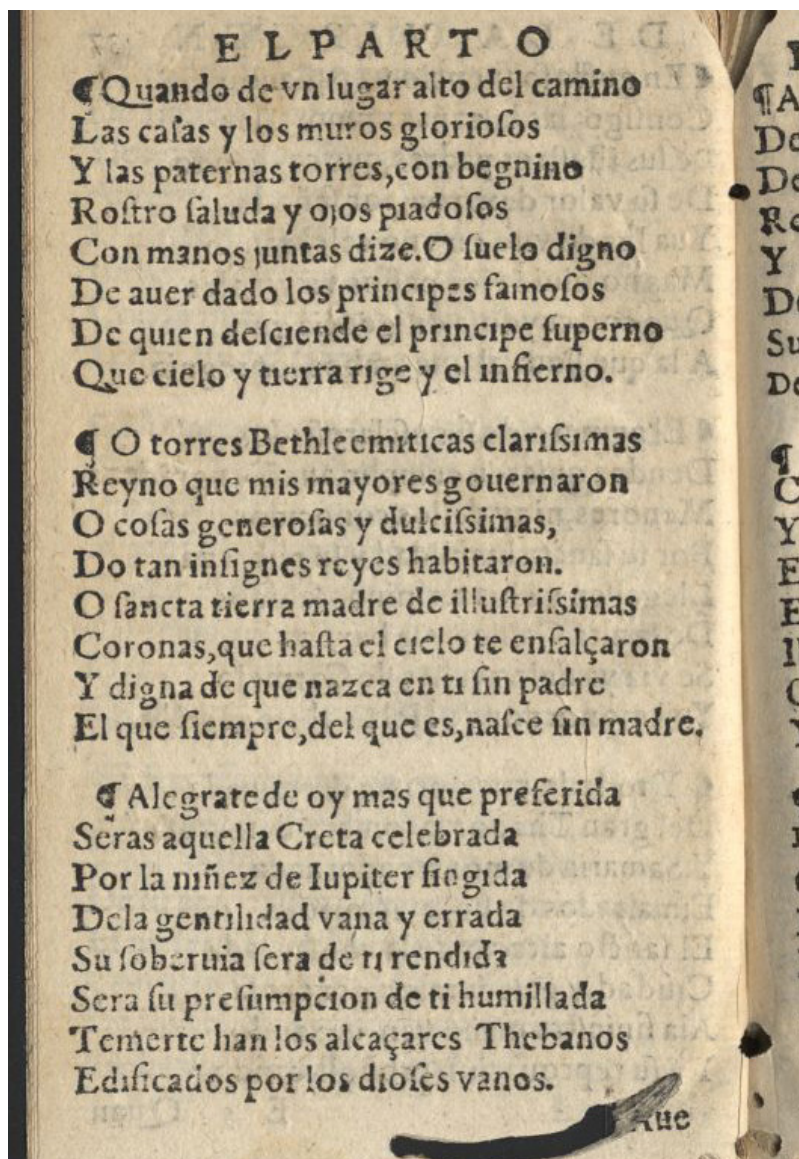 EL PARTO
¶ Quando de vn lugar alto del camino
Las casas y los muros gloriosos
Y las paternas torres, con begnino
Rostro saluda y ojos piadosos
Con manos juntas dize. O suelo digno
De auer dado los principes famosos
De quien desciende el principe superno
Que cielo y tierra rige y el infierno.
¶ O torres Bethleemiticas clarissimas
Reyno que mis mayores gouernaron
O cosas generosas y dulcissimas,
Do tan insignes reyes habitaron.
O sancta tierra madre de illustrissimas
Coronas, que hasta el cielo te ensalçaron
Y digna de que nazca en ti sin padre
El que siempre, del que es, nasce sin madre.
¶ Alegrate de oy mas que preferida
Seras aquella Creta celebrada
Por la niñez de Iupiter fingida
Dela gentilidad vana y errada
Su soberuia sera de ti rendida
Sera su presumpcion de ti humillada
Temerte han los alcaçares Thebanos
Edificados por los dioses vanos.